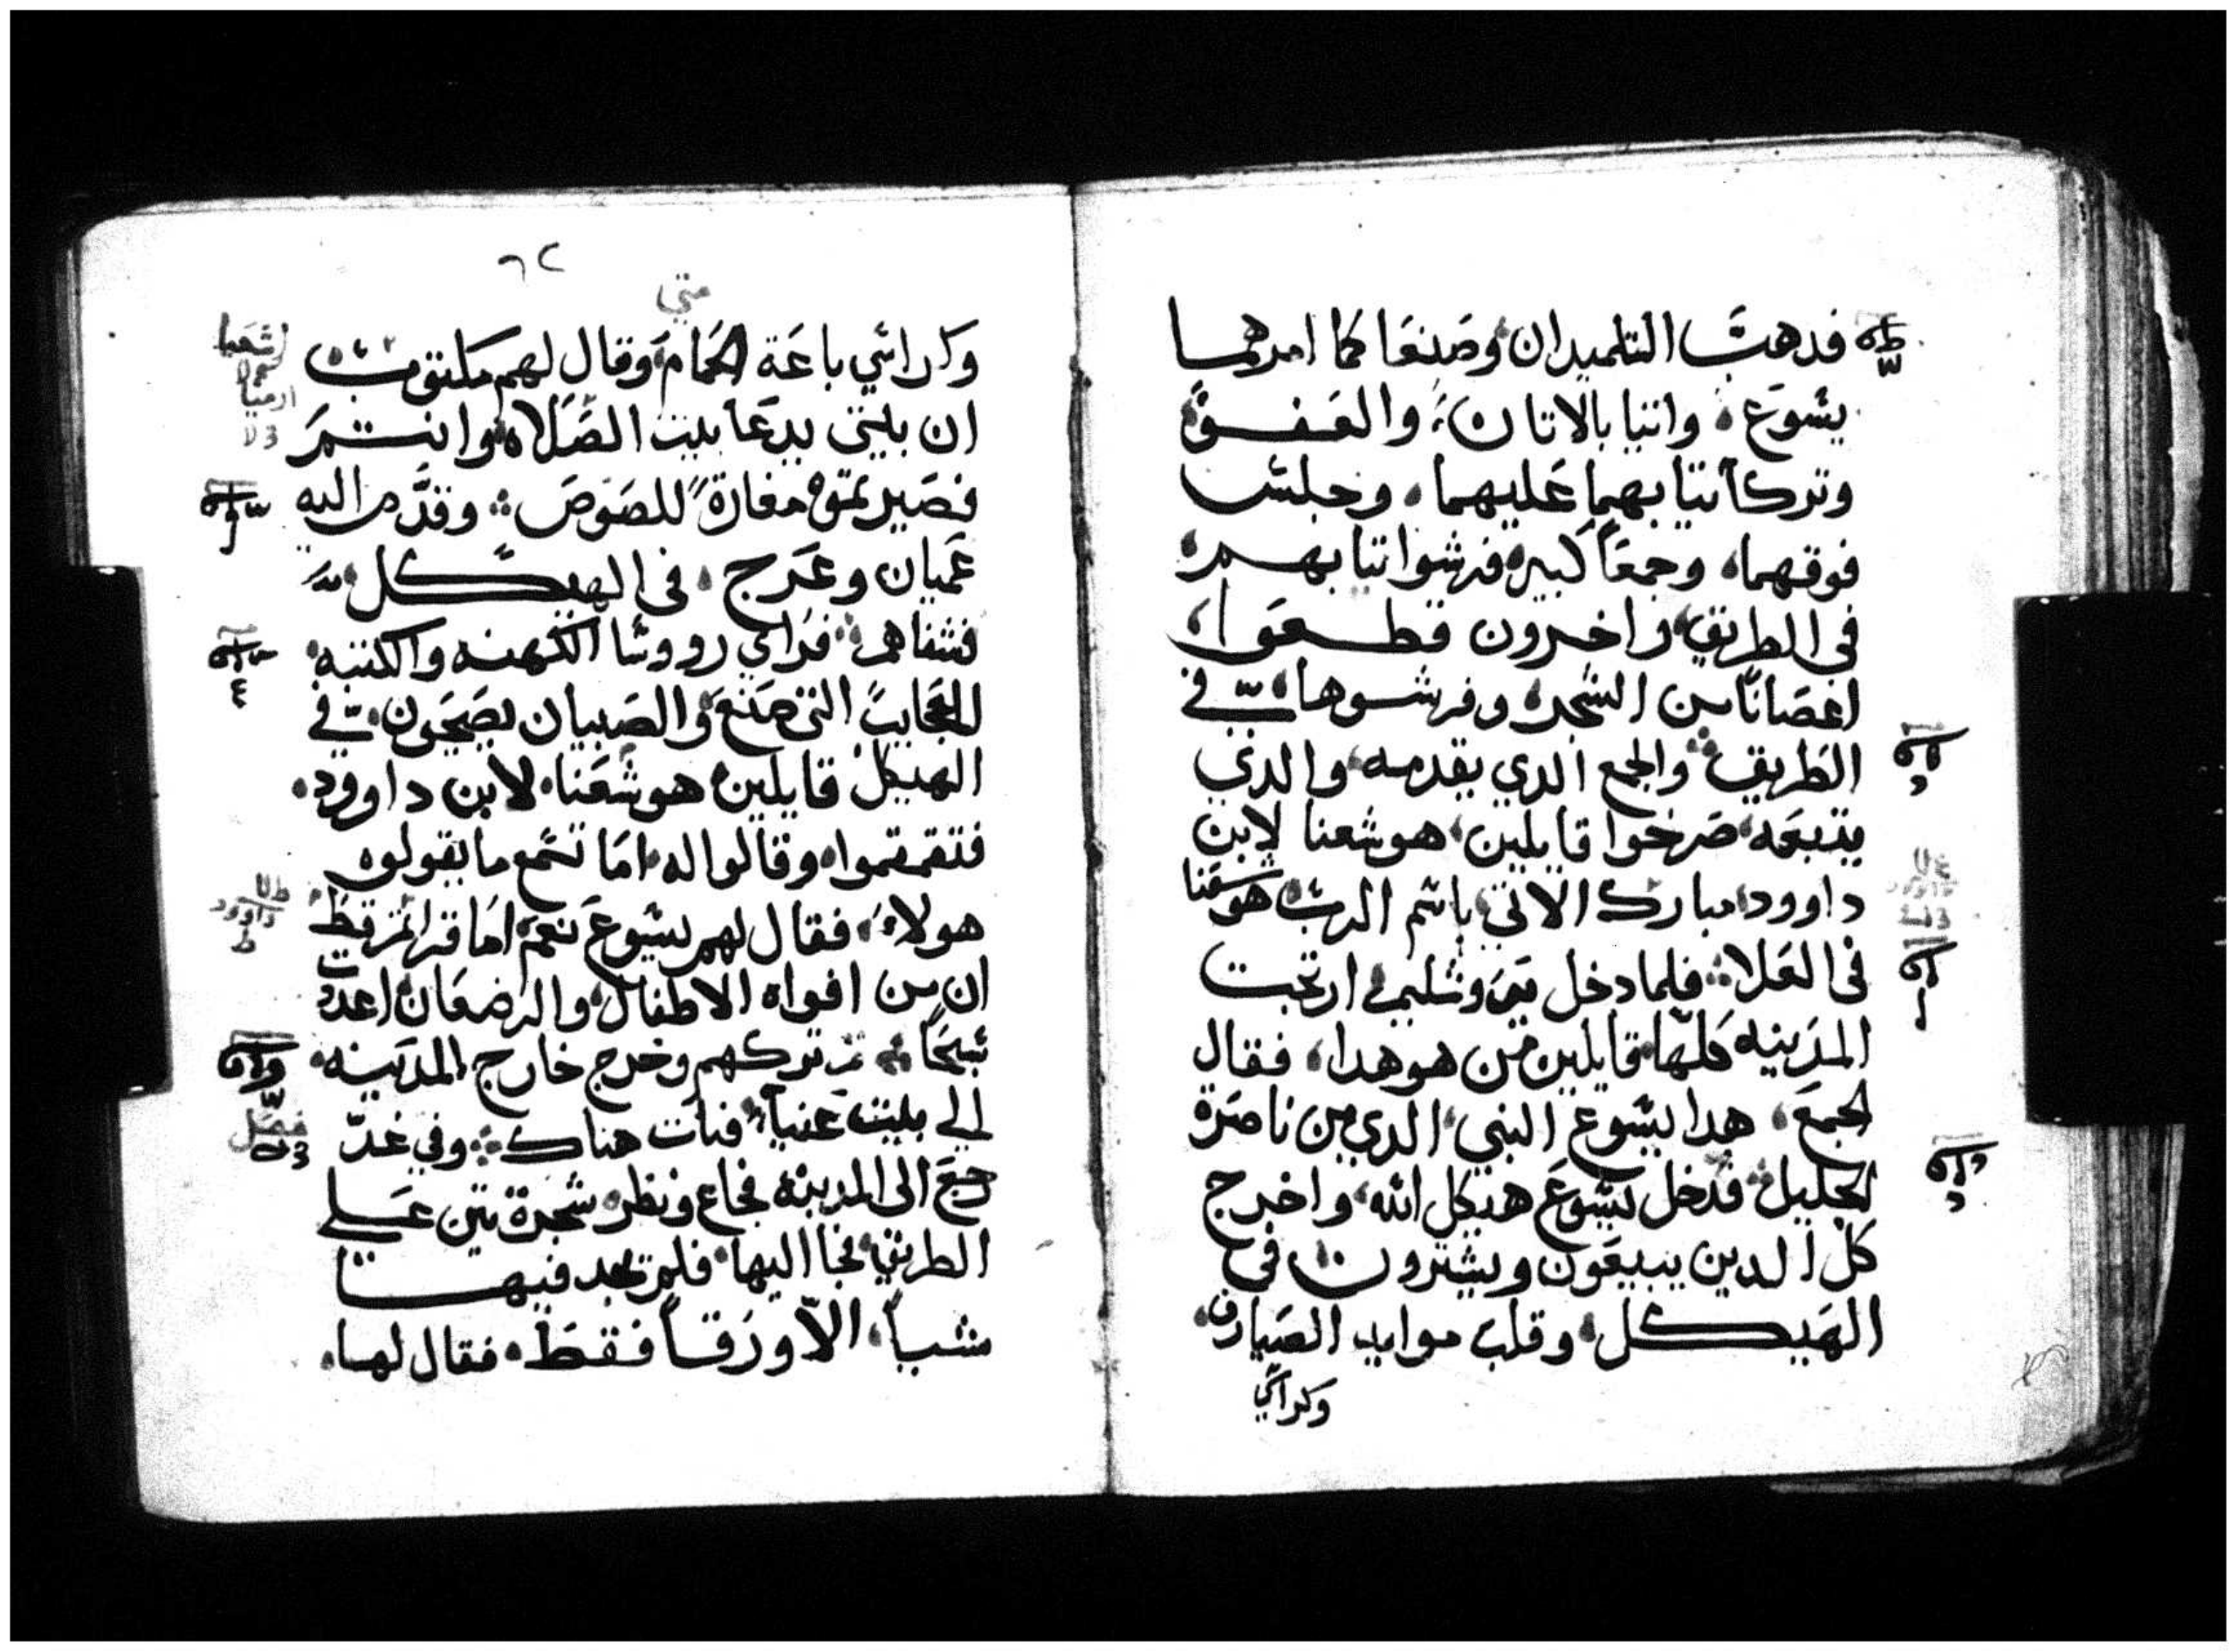 فدهب التلميدان وصنعا كما امرهما
يسوع واتيا بالاتان والعفو
وتركا تيابهما عليهما وجلس
فوقهما وجمعا كبيره فرشوا تيابهم
في الطريق واخرون قطعوا
اغصانا من الشجره وفرشوها في
الطريق والجمع الدي يقدمه والدي
يتبعه صرخوا قايلين هوشعنا لابن
داوود مبارك الاتي باسم الرب هوشعنا
في العلا فلما دخل يروشليم ارتجت
المدينه كلها قايلين من هو هدا فقال
الجمع هدا يسوع النبي الدي من ناصرة
الجليل فدخل يسوع هيكل الله واخرج
كل الدين يبيعون ويشترون في
الهيكل وقلب موايد الصيارف
وكراسي
٦٢
متي
وكراسي باعة الحمام وقال لهم مكتوب
ان بيتي يدعا بيت الصلاه وانتم
فصيرتموه مغارة للصوص وقدم اليه
عميان وعرج في الهيكل
فشفاهم فراي رووسا الكهنه والكتبه
العجايب التي صنع والصبيان يصيحون في
الهيكل قايلين هوشعنا لابن داوود
فتقمقموا وقالوا له اما تسمع ما يقولوه
هولاء فقال لهم يسوع نعم اما قراتم قط
ان من افواه الاطفال والرضعان اعددت
تسبحا تم تركهم وخرج خارج المدينه
الي بيت عنيا فبات هناك وفي غد
رجع الى المدينه فجاع ونظر شجرة تين علي
الطريق فجا اليها فلم يجد فيها
شيا الا ورقا فقط فقال لها
اشعيا
ارميا
داوود
فصل